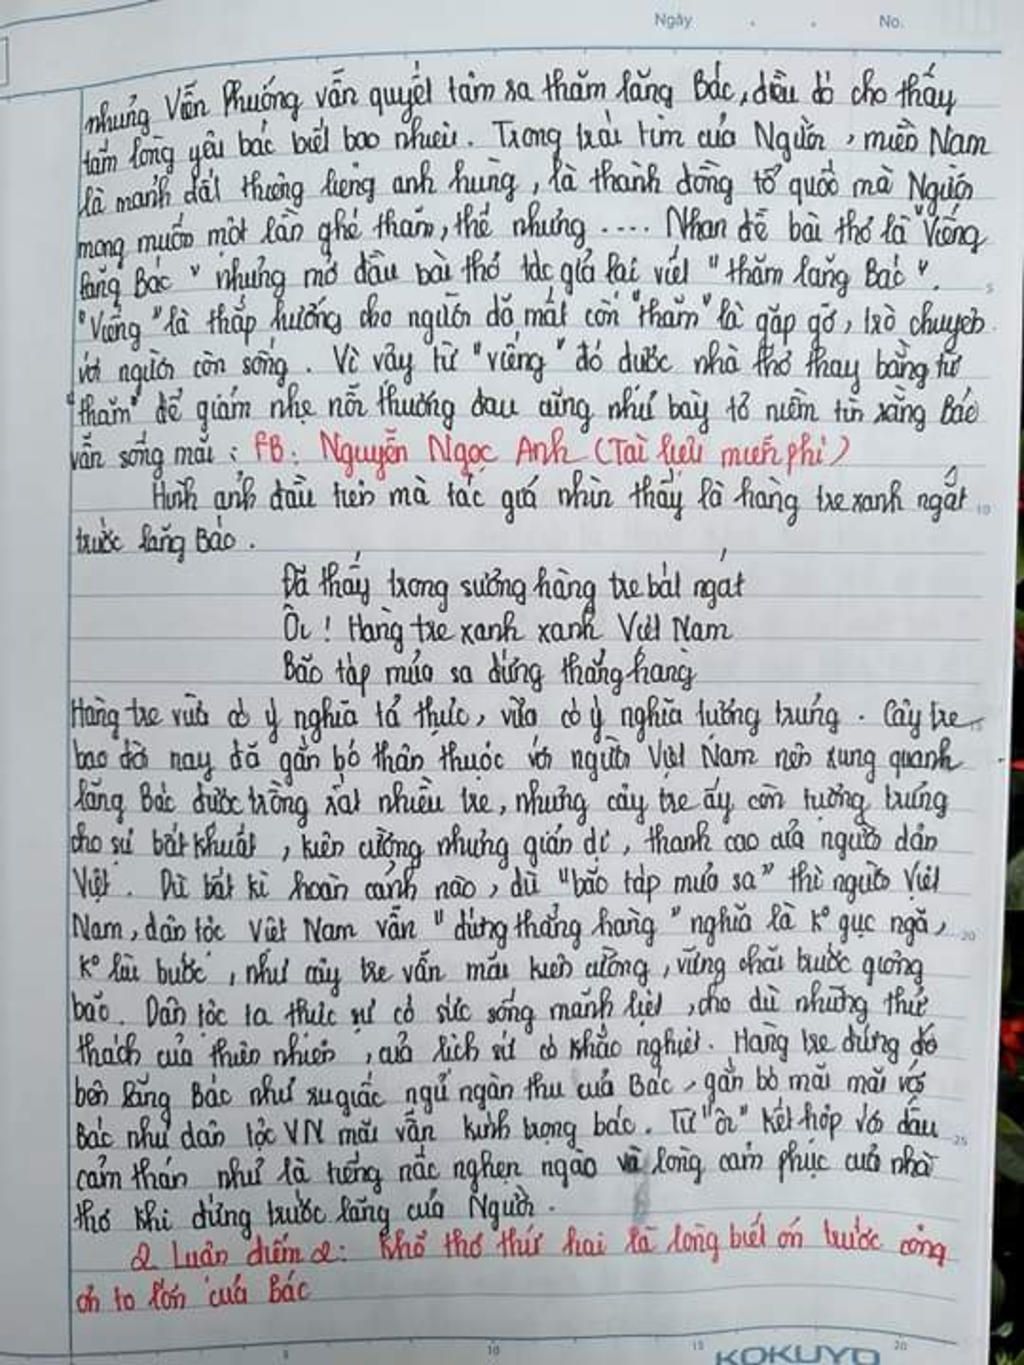 Ngày . . No.
nhưng Viễn Phương vẫn quyết tâm ra thăm lăng Bác, điều đó cho thấy
tấm lòng yêu bác biết bao nhiêu. Trong trái tim của Người, miền Nam
là mảnh đất thương liêng anh hùng, là thành đồng tổ quốc mà Người
mong muốn một lần ghé thăm, thế nhưng .... Nhan đề bài thơ là "Viếng
lăng Bác" nhưng mở đầu bài thơ tác giả lại viết "thăm lăng Bác".
5
"Viếng" là thắp hương cho người đã mất còn "thăm" là gặp gỡ, trò chuyện
với người còn sống. Vì vậy từ "viếng" đó được nhà thơ thay bằng từ
"thăm" để giảm nhẹ nỗi thương đau cũng như bày tỏ niềm tin rằng Bác
vẫn sống mãi : FB: Nguyễn Ngọc Anh (Tài liệu miễn phí)
Hình ảnh đầu tiên mà tác giả nhìn thấy là hàng tre xanh ngát 10
trước lăng Bác.
Đã thấy trong sương hàng tre bát ngát
Ôi ! Hàng tre xanh xanh Việt Nam
Bão táp mưa sa đứng thẳng hàng
Hàng tre vừa có ý nghĩa tả thực, vừa có ý nghĩa tượng trưng. Cây tre
bao đời nay đã gắn bó thân thuộc với người Việt Nam nên xung quanh
lăng Bác được trồng rất nhiều tre, nhưng cây tre ấy còn tượng trưng
cho sự bất khuất, kiên cường nhưng giản dị, thanh cao của người dân
Việt. Dù bất kì hoàn cảnh nào, dù "bão táp mưa sa" thì người Việt
Nam, dân tộc Việt Nam vẫn "đứng thẳng hàng" nghĩa là kº gục ngã, 20
kº lùi bước, như cây tre vẫn mãi kiên cường, vững chãi trước giông
bão. Dân tộc ta thực sự có sức sống mãnh liệt, cho dù những thử
thách của thiên nhiên, của lịch sử có khắc nghiệt. Hàng tre đứng đó
bên lăng Bác như ru giấc ngủ ngàn thu của Bác, gắn bó mãi mãi với
Bác như dân tộc VN mãi vẫn kính trọng bác. Từ "ôi" kết hợp với dấu 25
cảm thán như là tiếng nấc nghẹn ngào và lòng cảm phục của nhà
thơ khi đứng trước lăng của Người.
2 Luận điểm 2: Khổ thơ thứ hai là lòng biết ơn trước công
ơn to lớn của Bác
5 10 15 20
KOKUYO